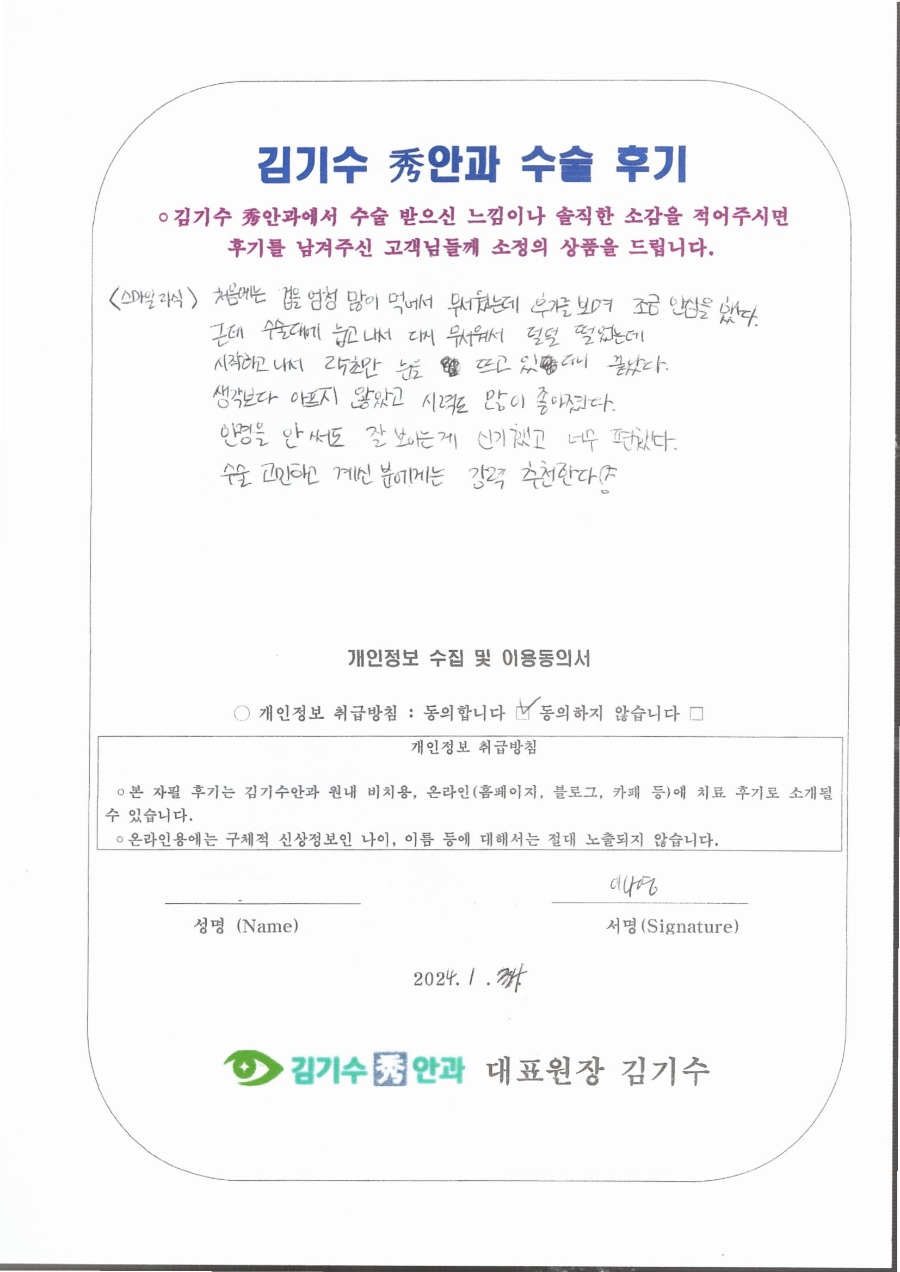 김기수 秀안과 수술 후기
○김기수 秀안과에서 수술 받으신 느낌이나 솔직한 소감을 적어주시면
후기를 남겨주신 고객님들께 소정의 상품을 드립니다.
<스마일라식> 처음에는 겁을 엄청 많이 먹어서 무서웠는데 후기를 보며 조금 안심을 했다.
근데 수술대에 눕고 나서 다시 무서워서 덜덜 떨었는데
시작하고 나서 25초만 눈을 뜨고 있더니 끝났다.
생각보다 아프지 않았고 시력도 많이 좋아졌다.
안경을 안 써도 잘 보이는게 신기했고 너무 편했다.
수술 고민하고 계신 분에게는 강력 추천한다!
개인정보 수집 및 이용동의서
○ 개인정보 취급방침 : 동의합니다 ☑ 동의하지 않습니다 □
개인정보 취급방침
○본 자필 후기는 김기수안과 원내 비치용, 온라인(홈페이지, 블로그, 카페 등)에 치료 후기로 소개될
수 있습니다.
○온라인용에는 구체적 신상정보인 나이, 이름 등에 대해서는 절대 노출되지 않습니다.
이나영
성명 (Name) 서명(Signature)
2024. 1 .
김기수 秀 안과 대표원장 김기수